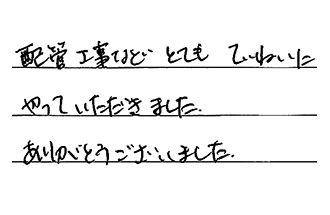 配管工事など とても ていねいに
やっていただきました.
ありがとうございました.